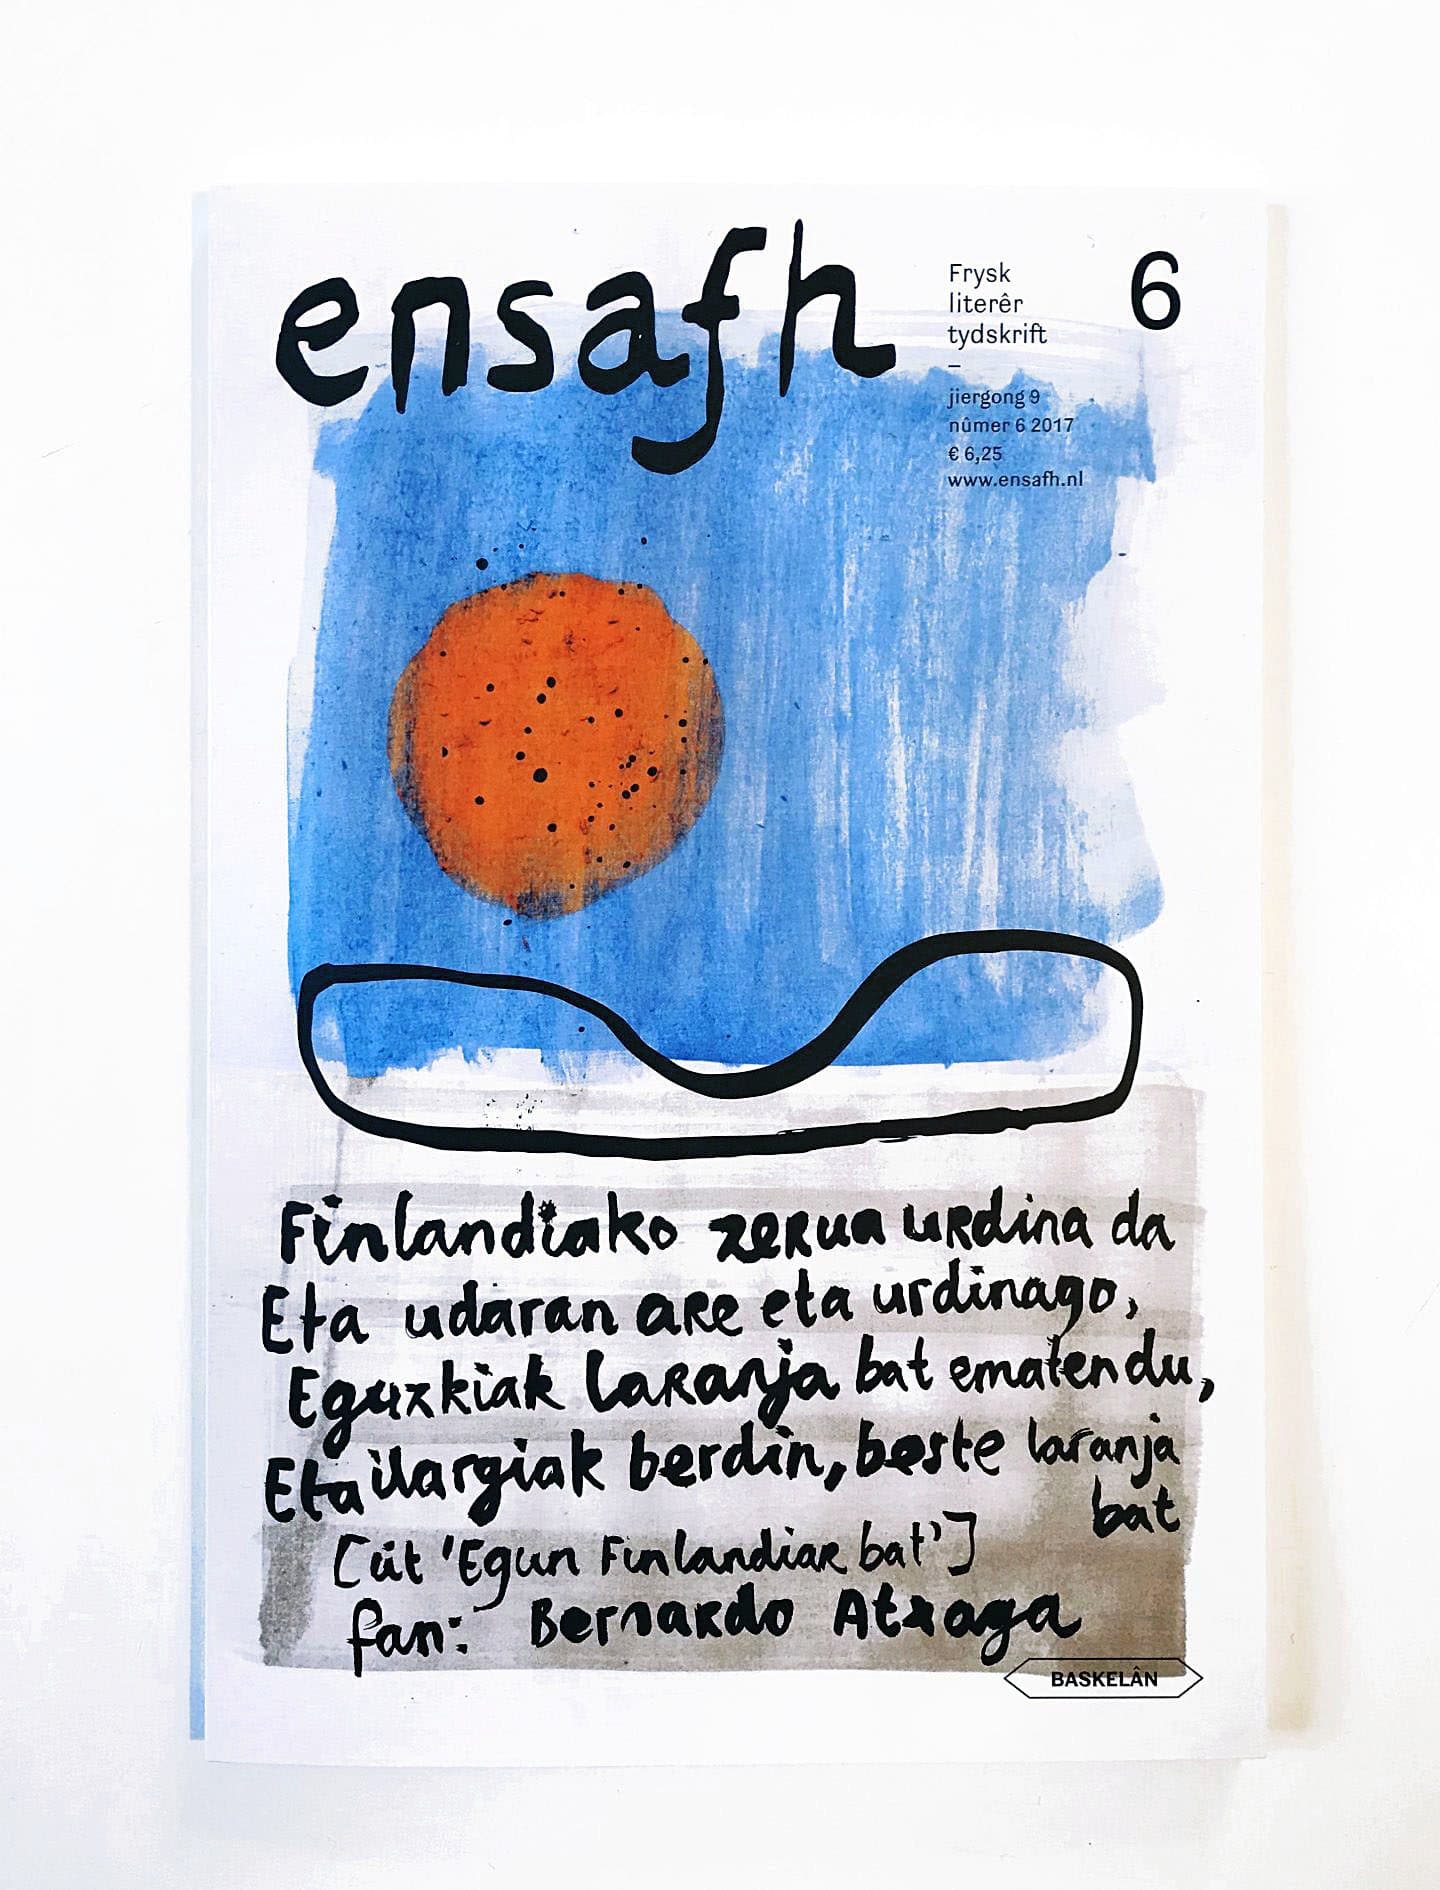 ensafh
Frysk
literêr
tydskrift
–
jiergong 9
nûmer 6 2017
€ 6,25
www.ensafh.nl
6
Finlandiako zerua urdina da
Eta udaran are eta urdinago,
Eguzkiak laranja bat ematen du,
Eta ilargiak berdin, beste laranja
bat
[út 'Egun Finlandiar bat']
fan: Bernardo Atxaga
BASKELÂN